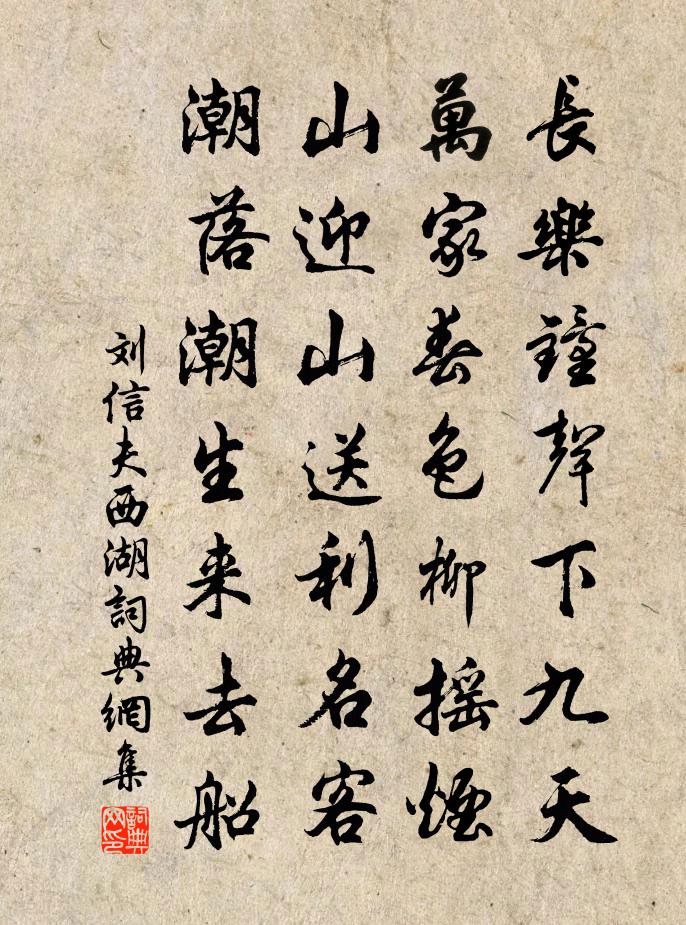 長樂鐘聲下九天
萬家春色柳摇煙
山迎山送利名客
潮落潮生来去船
刘信夫西湖詞典網集
詞典网印